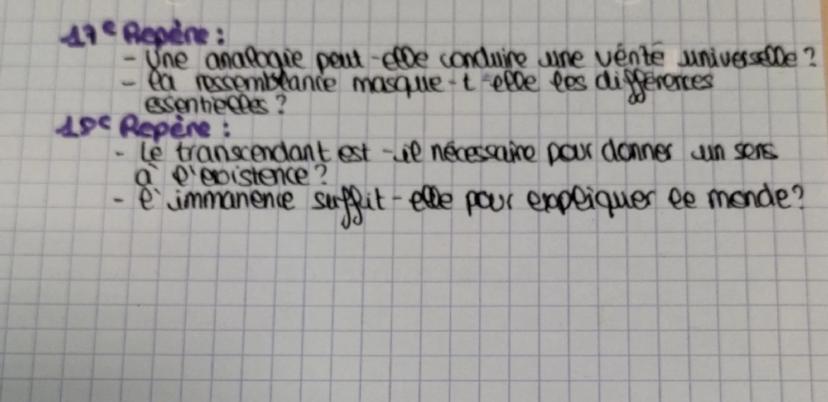 17e Repère :
- Une analogie peut-elle conduire une vérité universelle ?
- la ressemblance masque-t-elle les différences
essentielles ?
18e Repère :
- Le transcendant est-il nécessaire pour donner un sens
à l'existence ?
- l'immanence suffit-elle pour expliquer le monde ?